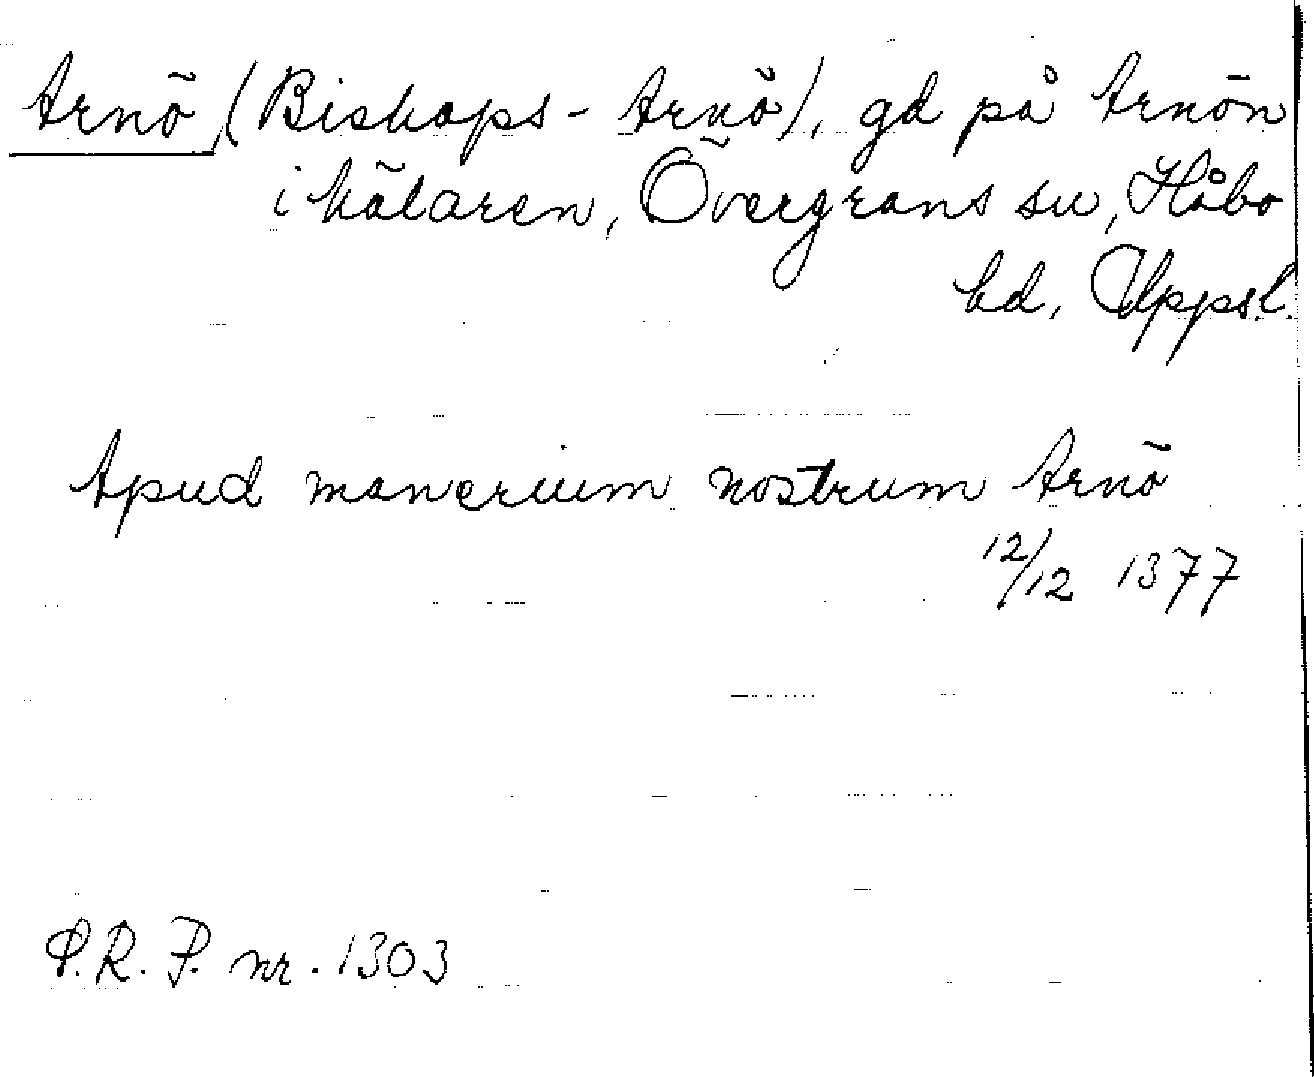 Arnö (Biskops-Arnö), gd på Arnön
i Mälaren, Övergrans sn, Håbo
hd, Uppsl.
Apud manerium nostrum Arnö
12/12 1377
P.R.P. nr. 1303